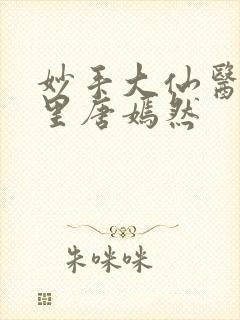 妙手大仙醫
里唐嫣然
朱咪咪